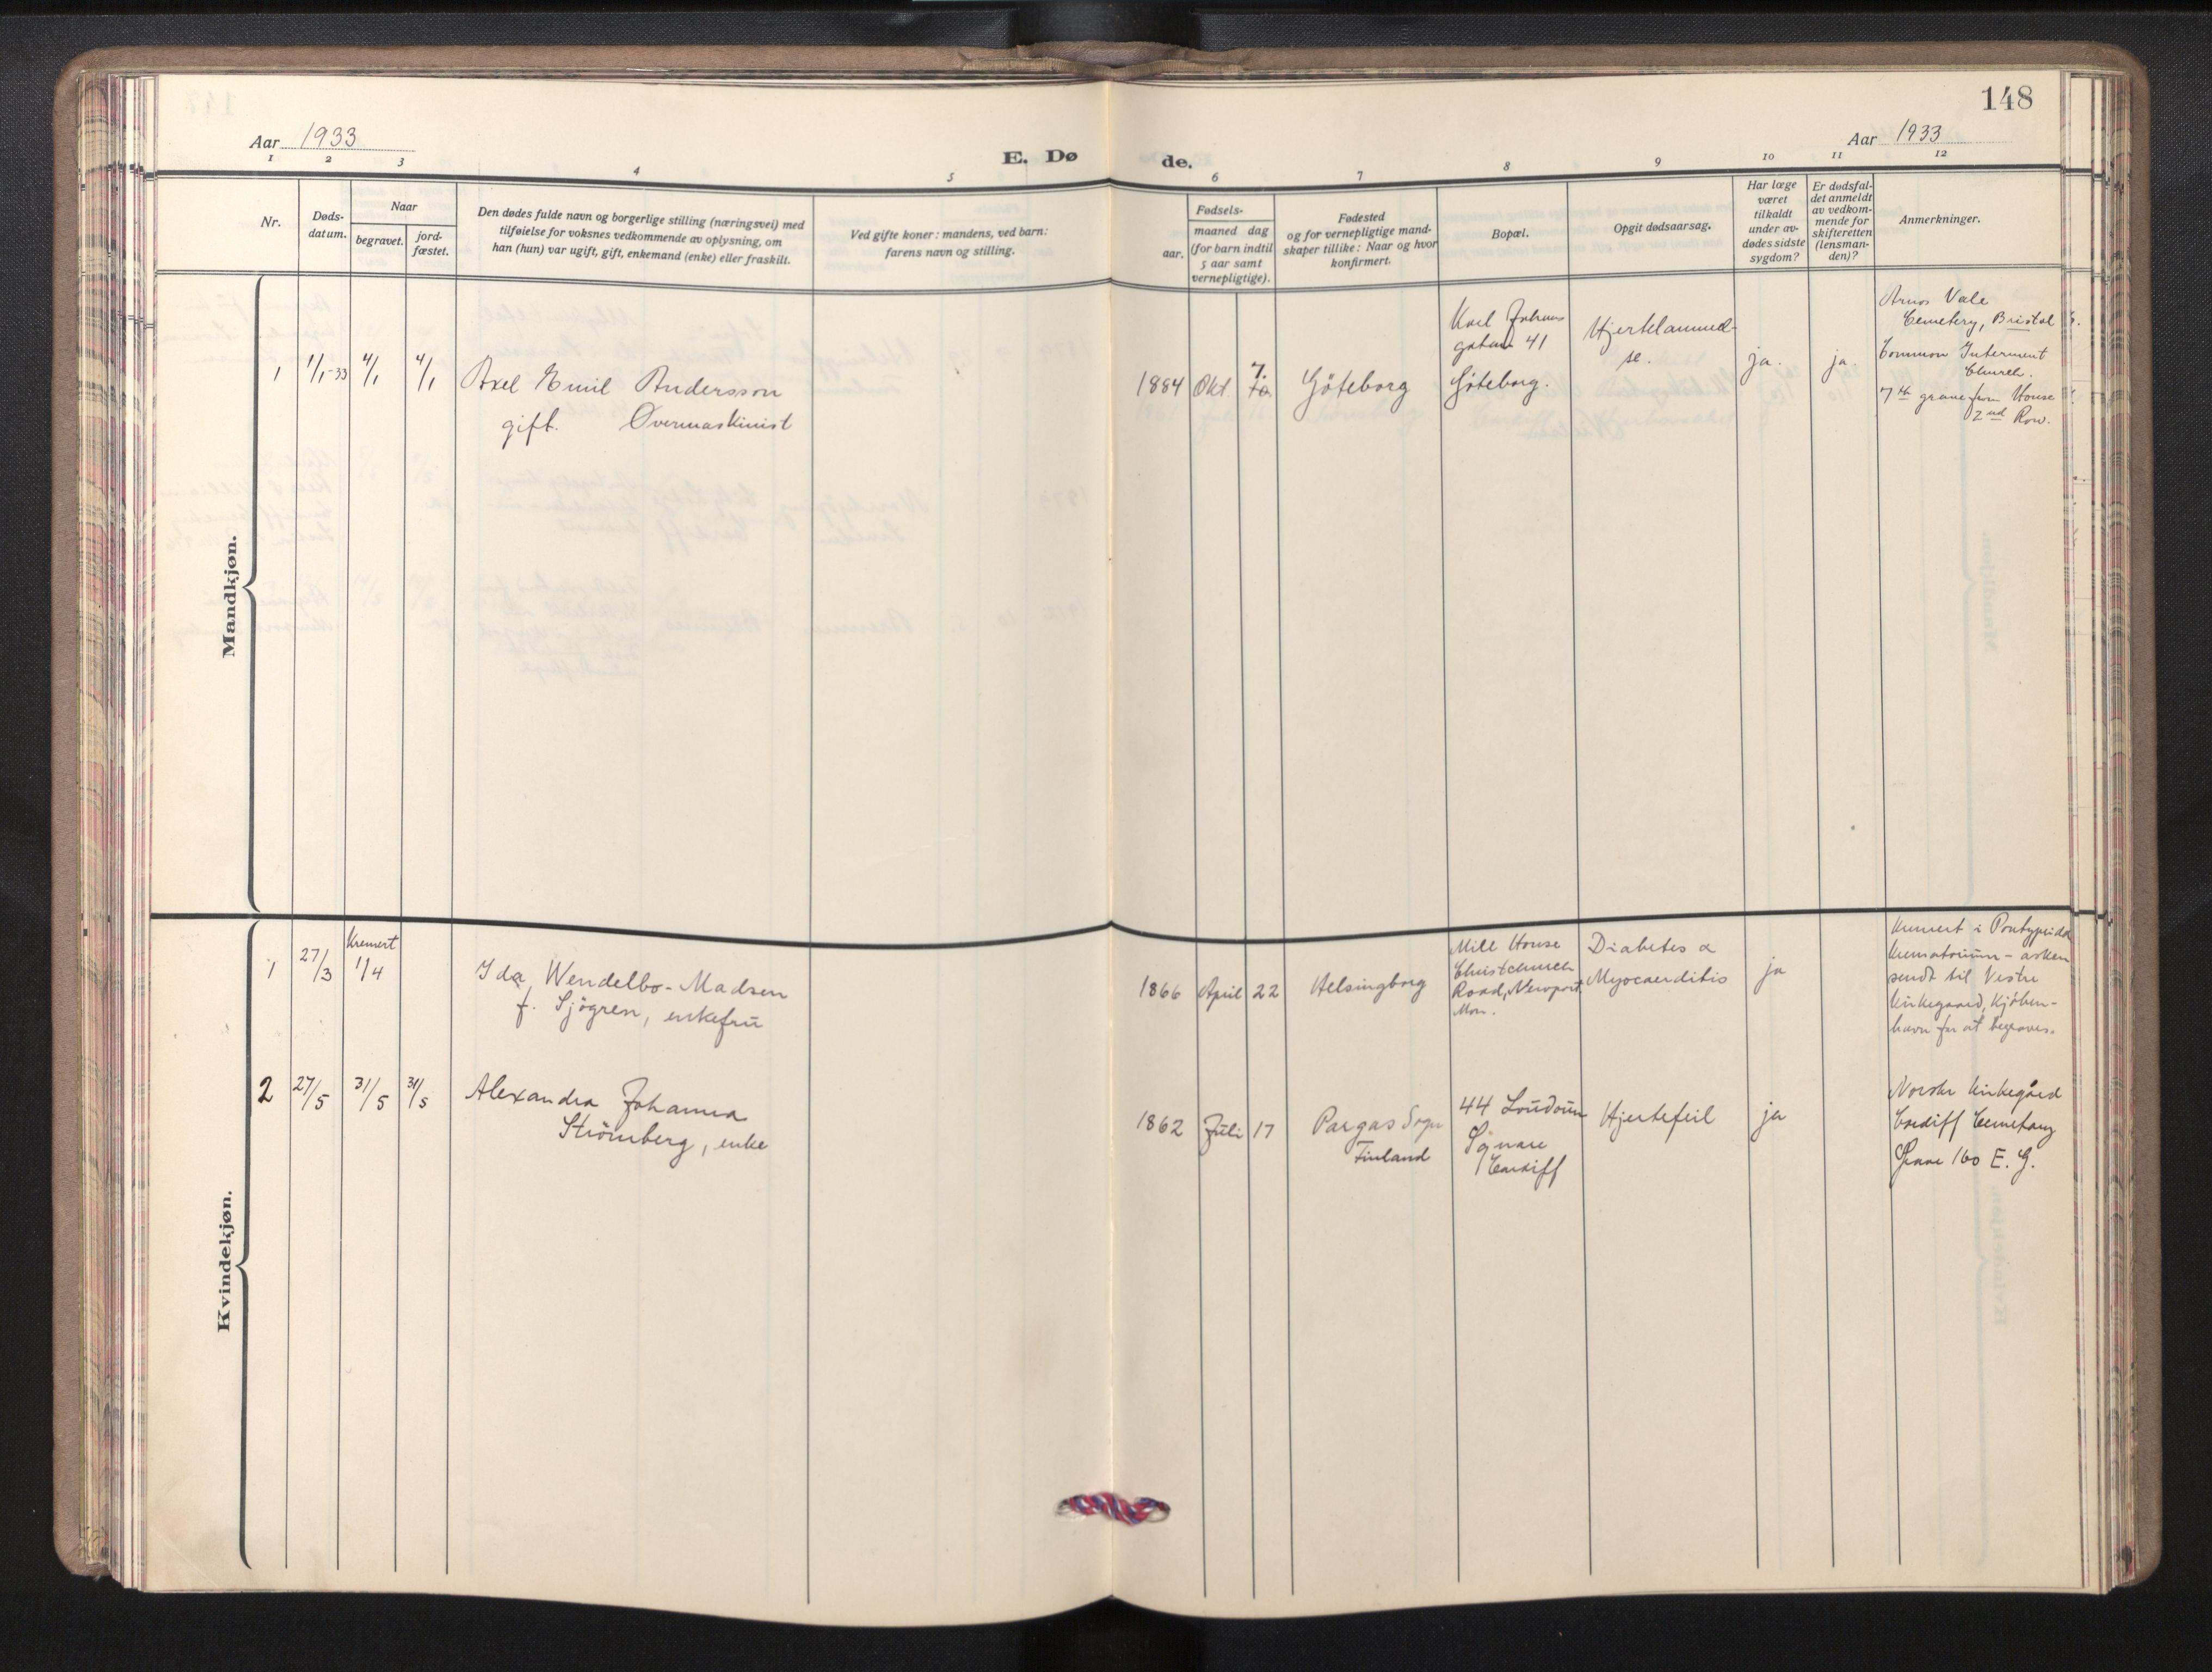 148
Aar 1933
Aar 1933
E. Dø
de.
1 2 3 4 5 6 7 8 9 10 11 12
Nr.
Døds-
datum.
Naar
begravet.
jord-
fæstet.
Den dødes fulde navn og borgerlige stilling (næringsvei) med
tilføielse for voksnes vedkommende av oplysning, om
han (hun) var ugift, gift, enkemand (enke) eller fraskilt.
Ved gifte koner: mandens, ved barn:
farens navn og stilling.
Fødsels-
aar.
maaned dag
(for barn indtil
5 aar samt
vernepligtige).
Fødested
og for vernepligtige mand-
skaper tillike: Naar og hvor
konfirmert.
Bopæl.
Opgit dødsaarsag.
Har læge
været
tilkaldt
under av-
dødes sidste
sygdom?
Er dødsfal-
det anmeldt
av vedkom-
mende for
skifteretten
(lensman-
den)?
Anmerkninger.
Mandkjøn.
1
1/1-33
4/1
4/1
Axel Emil Andersson
gift. Overmaskinist
1884
Okt
7.
Göteborg
Karl Johans
gatan 41
Göteborg.
Hjertelammel-
se.
ja.
ja.
Arnos Vale
Cemetery, Bristol
Common Interment
Church.
7th grave from House
2nd Row.
Kvindekjøn.
1
27/3
Kremert
1/4
Ida Wendelbo-Madsen
f. Sjögren, enkefru
1866
April
22
Helsingborg
Mill House
Christchurch
Road, Newport
Mon.
Diabetes &
Myocaerditis
ja
Kremert i Pontypridd
krematorium - asken
sendt til Vestre
kirkegaard, Kjøben-
havn for at begraves.
2
27/5
31/5
31/5
Alexandra Johanna
Strömberg, enke
1862
Juli
17
Pargas Sogn
Finland
44 Loudoun
Square
Cardiff
Hjertefeil
ja
Norske kirkegård
Cardiff Cemetary
Grave 160 E. G.